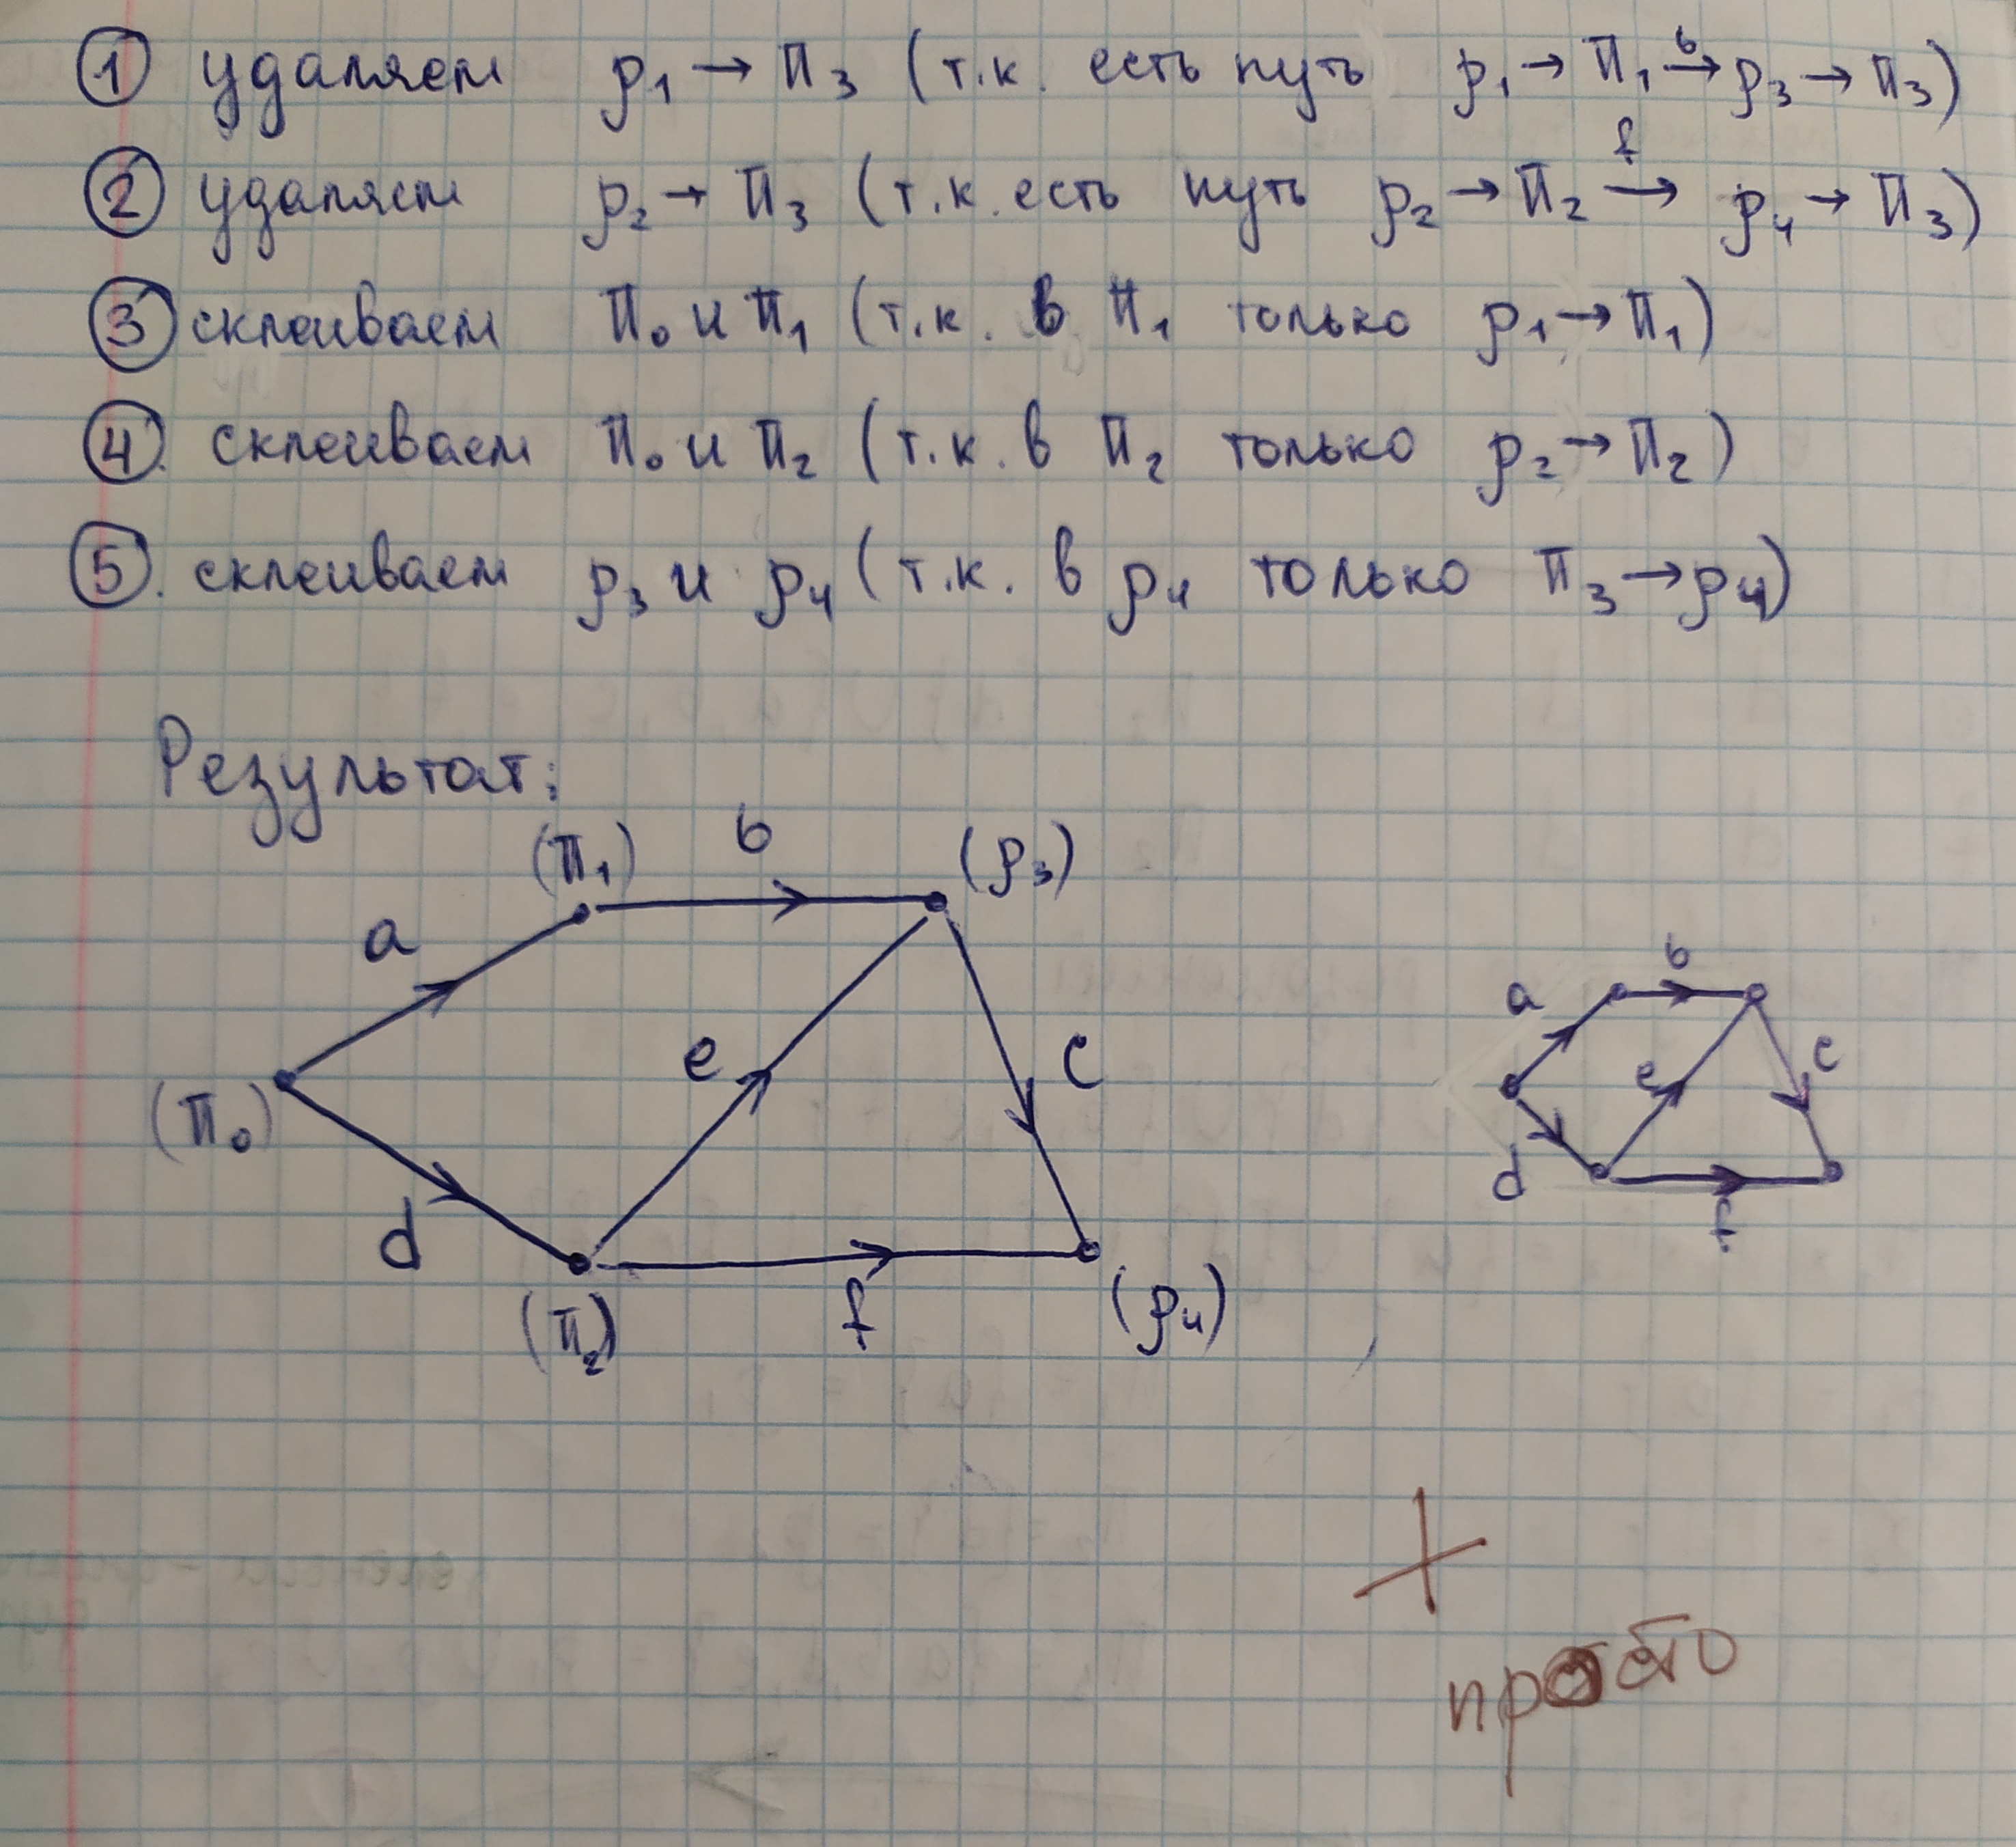 ① удаляем ρ₁ → П₃ (т.к. есть путь ρ₁ → П₁ →ᵇ ρ₃ → П₃)
② удаляем ρ₂ → П₃ (т.к. есть путь ρ₂ → П₂ →ᶠ ρ₄ → П₃)
③ склеиваем П₀ и П₁ (т.к. в П₁ только ρ₁ → П₁)
④. склеиваем П₀ и П₂ (т.к. в П₂ только ρ₂ → П₂)
⑤. склеиваем ρ₃ и ρ₄ (т.к. в ρ₄ только П₃ → ρ₄)
Результат:
(П₁) b (ρ₃)
a
e c
(П₀)
d
(П₂) f (ρ₄)
b
a
e c
d
f
+
просто